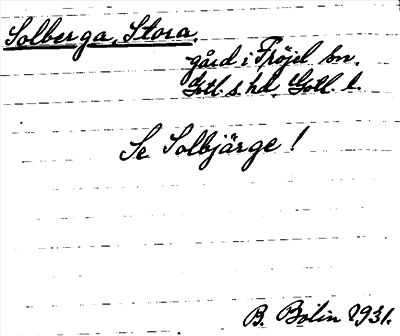 Solberga, Stora.
gård i Fröjel sn.
Gotl. s. hd. Gotl. l.
Se Solbjärge!
B. Bolin 1931.